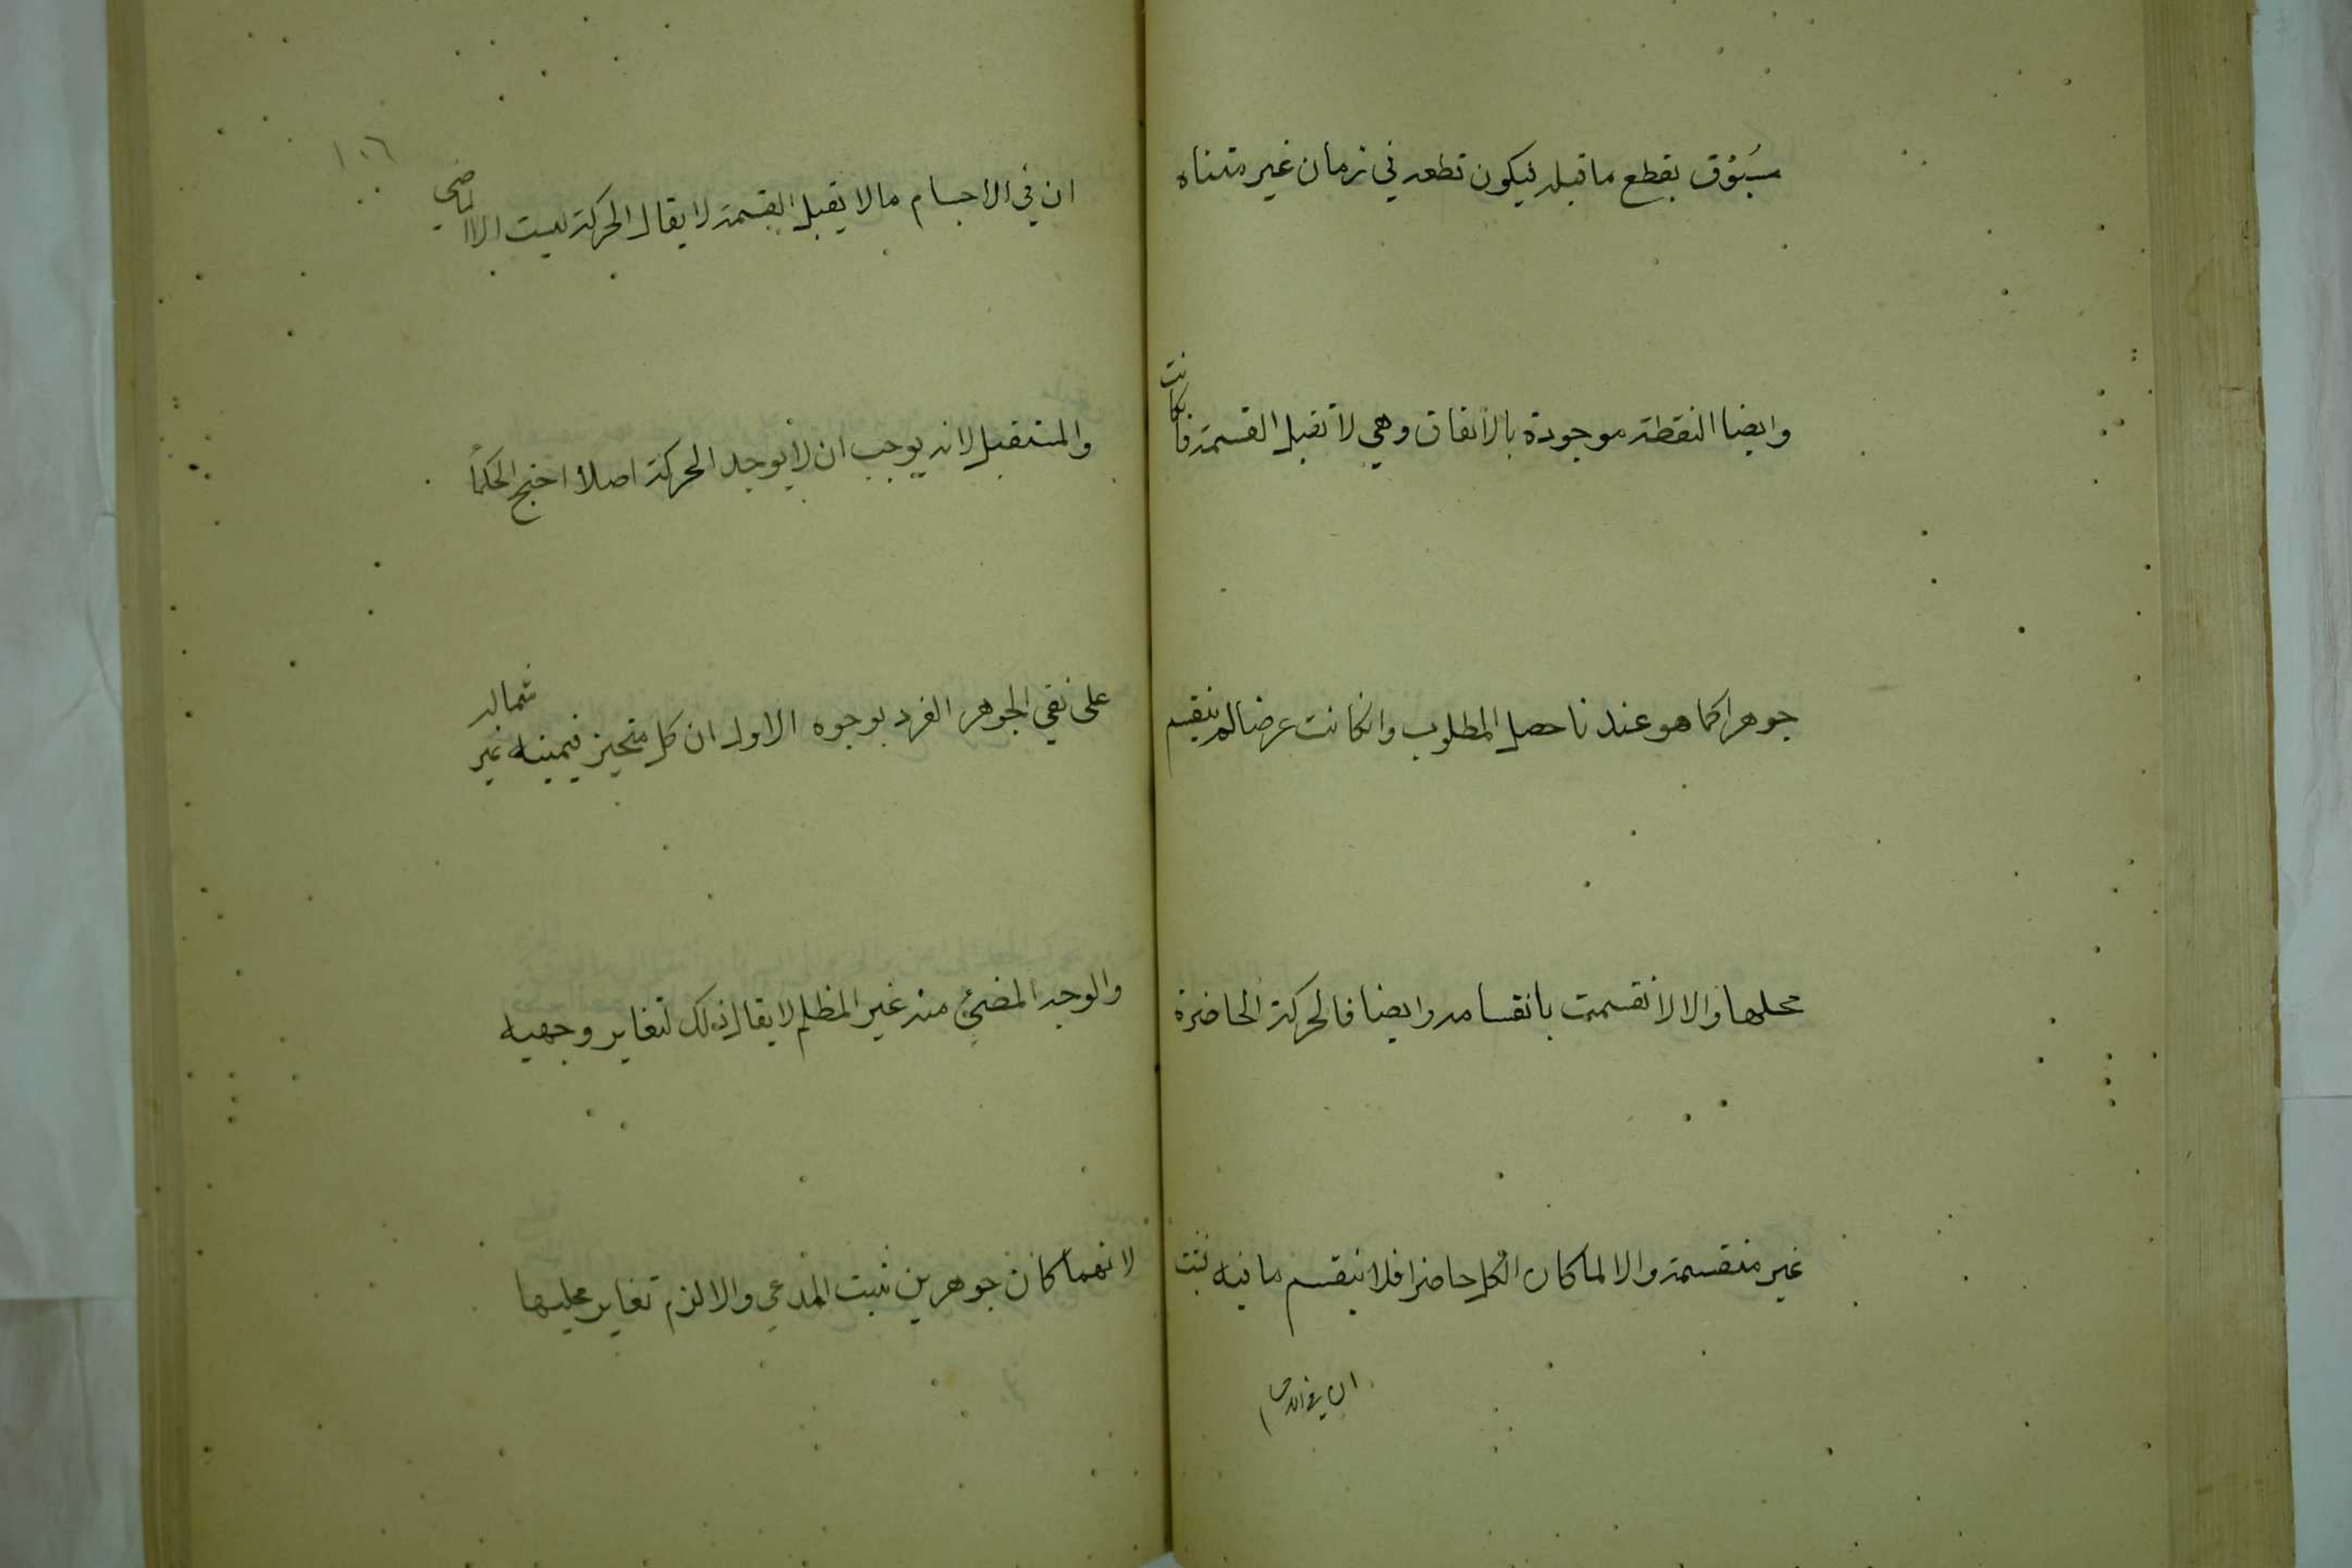 مسبُوق بقطع ما قبله فيكون قطعه في زمان غير متناه
وايضا النقطة موجودة بالاتفاق وهي لا تقبل القسمة فان كانت
جوهرا كما هو عندنا حصل المطلوب وان كانت عرضا لم ينقسم
محلها والا لانقسمت بانقسامه وايضا فالحركة الحاضرة
غير منقسمة والا لما كان الكل حاضرا فلا ينقسم ما فيه ثبت
ان في الاجسام
١٠٦
ان في الاجسام ما لا يقبل القسمة لا يقال الحركة ليست الا الماضي
والمستقبل لانه يوجب ان لا يوجد الحركة اصلا احتج الحكماً
على نفي الجوهر الفرد بوجوه الاول ان كل متحيز فيمينه غير شماله
والوجه المضئ منه غير المظلم لا يقال ذلك لتغاير وجهيه
لانهما كانا جوهرين ثبت المدعي والا لزم تغاير محليها